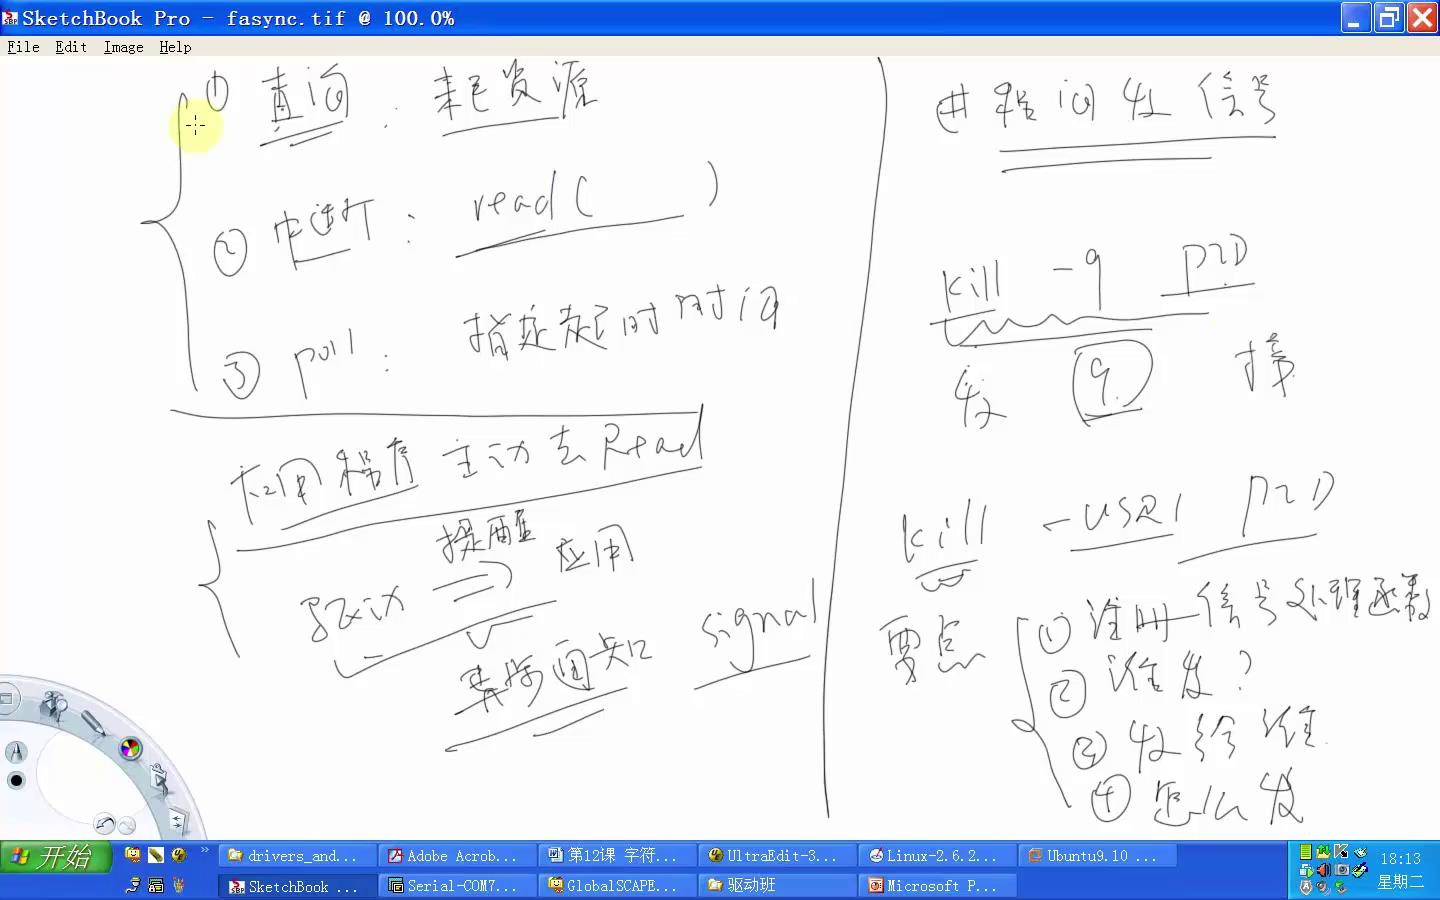 SketchBook Pro - fasync.tif @ 100.0%
File Edit Image Help
① 查询: 耗资源
② 中断: read( )
③ poll: 指定超时时间
应用程序 主动去 Read
提醒
驱动 => 应用
异步通知 signal
进程间发信号
kill -9 PID
发 9
kill -USR1 PID
要点
① 注册 信号处理函数
② 谁发?
③ 发给谁
④ 怎么发
开始
drivers_and... Adobe Acrob... 第12课 字符... UltraEdit-3... Linux-2.6.2... Ubuntu9.10 ...
SketchBook ... Serial-COM7... GlobalSCAPE... 驱动班 Microsoft P...
18:13
星期二